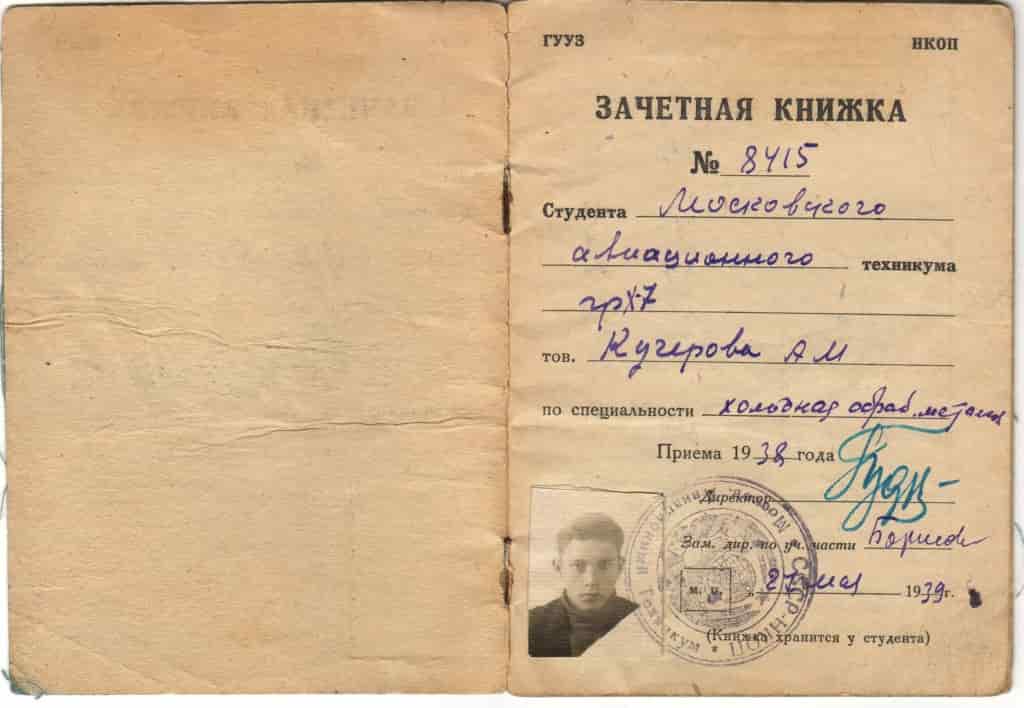 ГУУЗ НКОП
ЗАЧЕТНАЯ КНИЖКА
№ 8415
Студента Московского
авиационного техникума
гр X-7
тов. Кучерова А М
по специальности холодная обраб. металла
Приема 1938 года
Директор
Зам. дир. по уч. части
м. п. „27 мая 1939 г.
(Книжка хранится у студента)